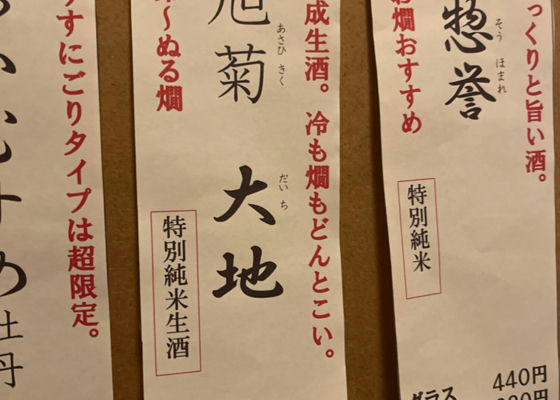 っくりと旨い酒。
惣誉
そう ほまれ
お燗おすすめ
特別純米
グラス 440円
成生酒。冷も燗もどんとこい。
旭菊 大地
あさひ きく だい ち
ぬる燗
特別純米生酒
うすにごりタイプは超限定。
むすめ 牡丹